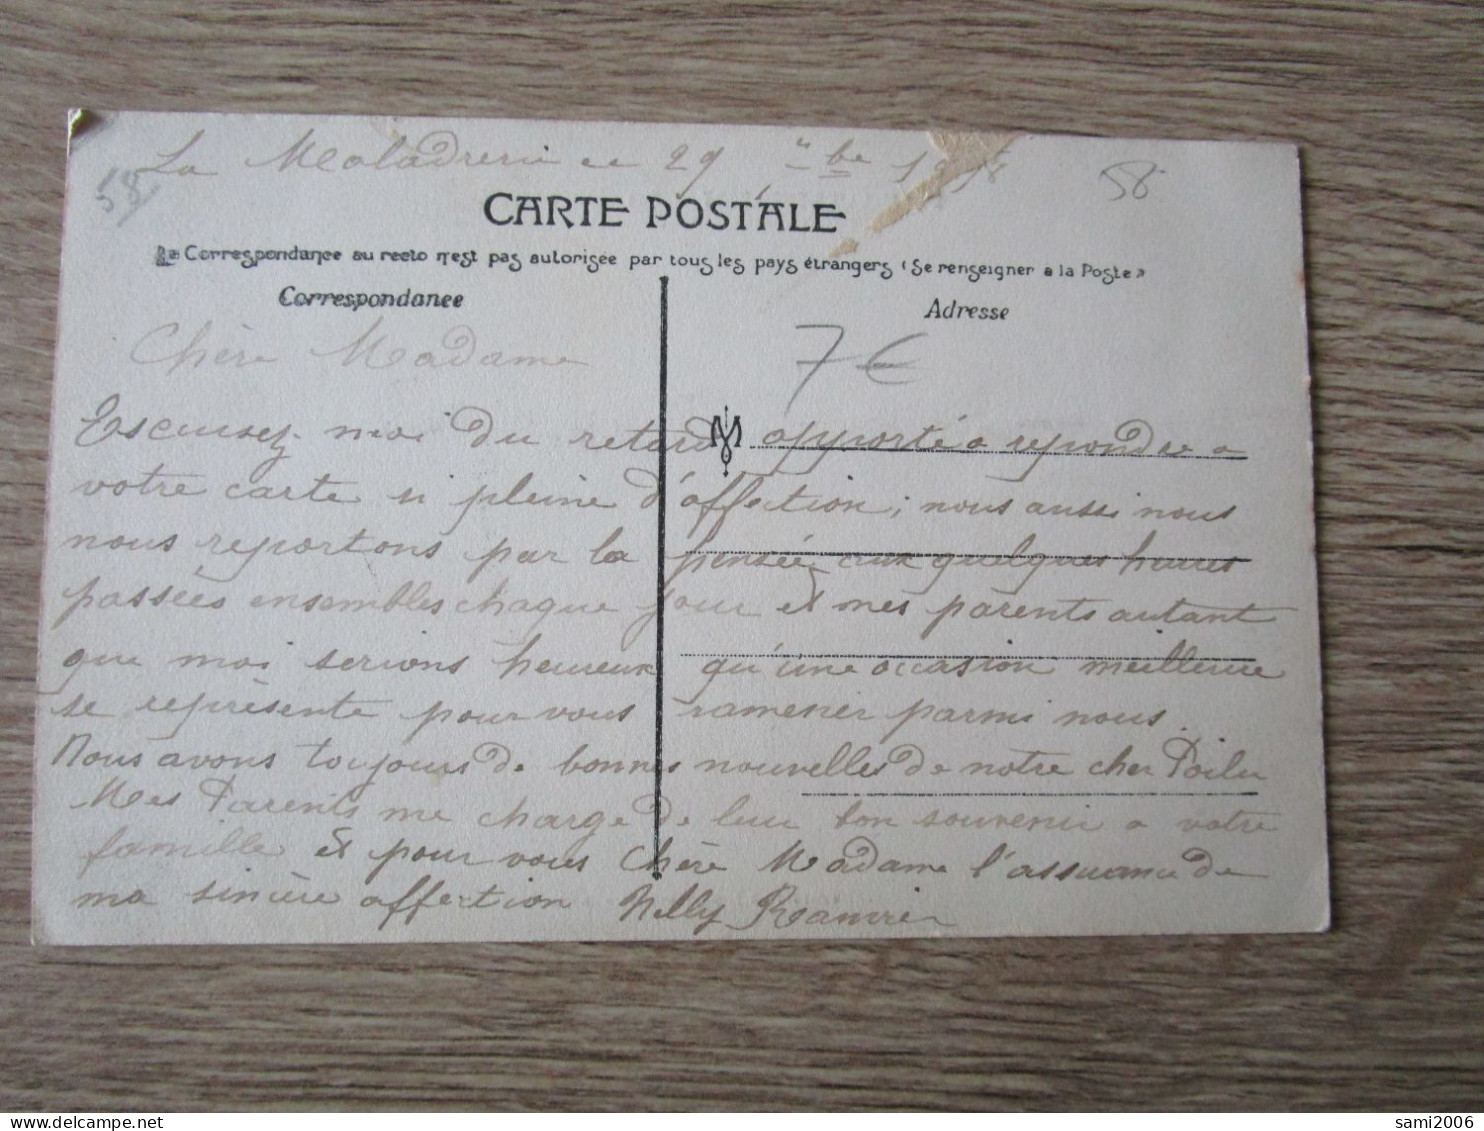 La Maladrerie ce 29 "bre
58
58
CARTE POSTALE
La Correspondance au recto n'est pas autorisée par tous les pays étrangers (Se renseigner a la Poste)
Correspondance
Adresse
7€
Chère Madame
Escusez moi du retard apporté a repondre a
votre carte si pleine d'affection; nous aussi nous
nous reportons par la pensée aux quelques heures
passées ensembles chaque jour et mes parents autant
que moi serions heureux qu'une occasion meilleure
se représente pour vous ramener parmi nous.
Nous avons toujours de bonnes nouvelles de notre cher Poilu
Mes Parents me charge de leur bon souvenir a votre
famille et pour vous Chère Madame l'assurance de
ma sincère affection Nelly
sami2006